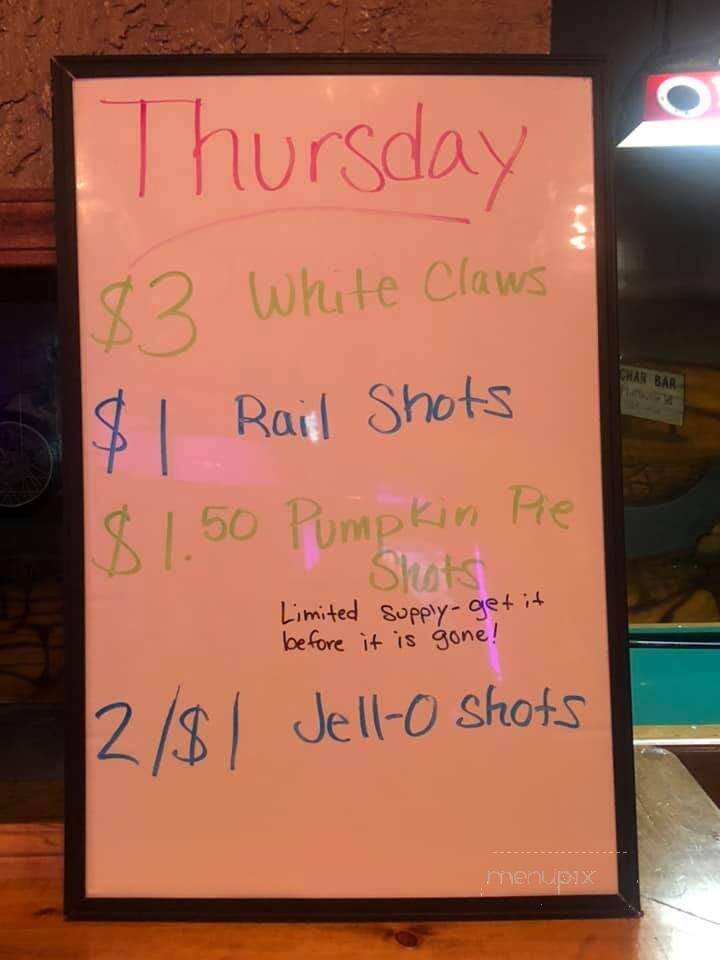 Thursday
$3 White Claws
$1 Rail Shots
$1.50 Pumpkin Pie
Shots
Limited supply - get it
before it is gone!
2/$1 Jell-O shots
CHAR BAR
menupix